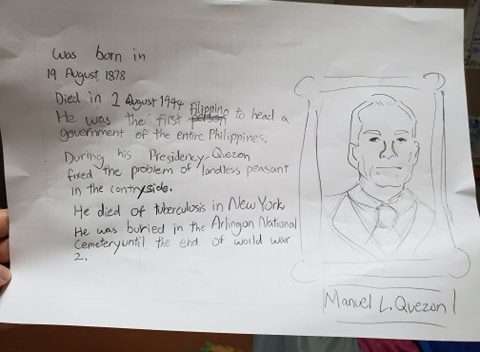 was born in
19 August 1878
Died in 1 August 1944 filippino
He was the first person to head a
government of the entire Philippines.
During his Presidency, Quezon
fixed the problem of landless peasant
in the contryside.
He died of tuberculosis in New York
He was buried in the Arlingon National
Cemetery until the end of world war
2.
Manuel L. Quezon